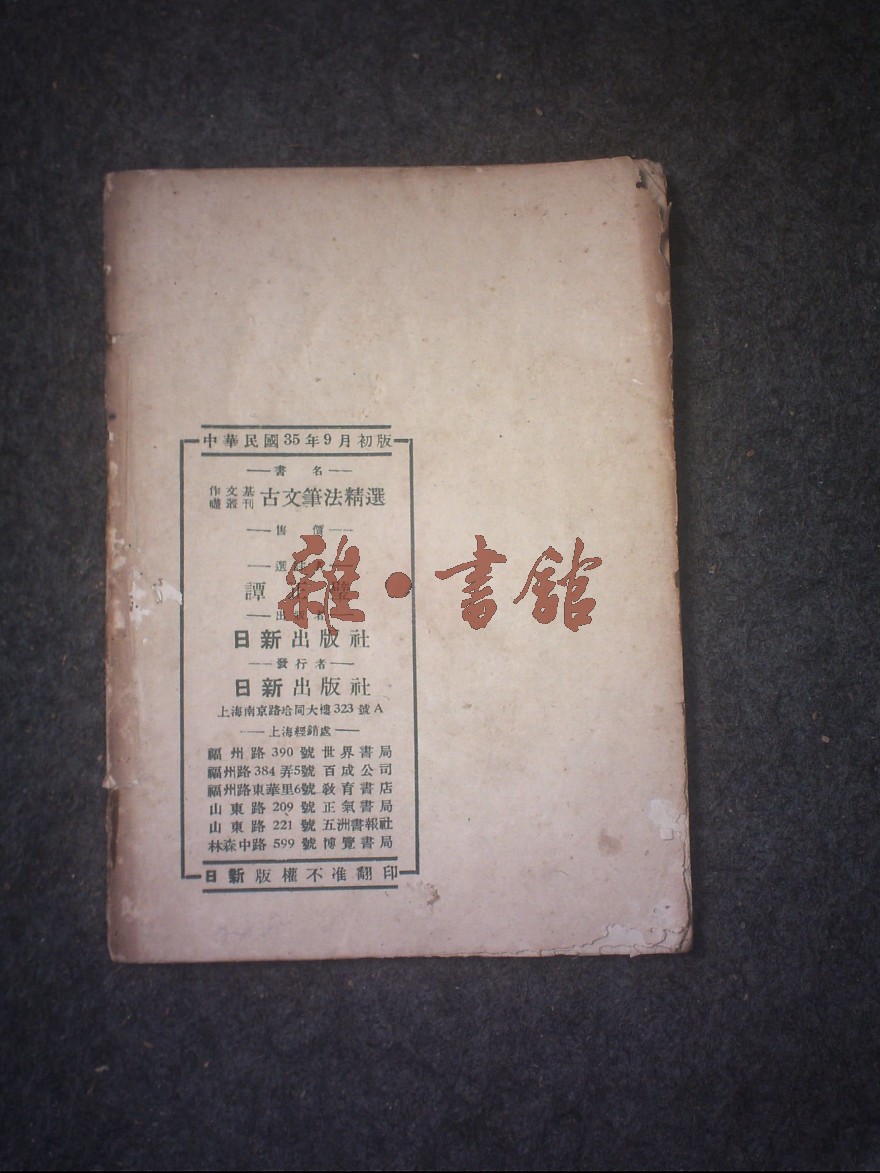 中華民國35年9月初版
書名
作文基礎叢刊 古文筆法精選
售價
選
譚正
出版者
日新出版社
發行者
日新出版社
上海南京路哈同大樓323號A
上海經銷處
福州路390號世界書局
福州路384弄5號百成公司
福州路東華里6號教育書店
山東路209號正氣書局
山東路221號五洲書報社
林森中路599號博覽書局
日新版權不准翻印
雜·書館